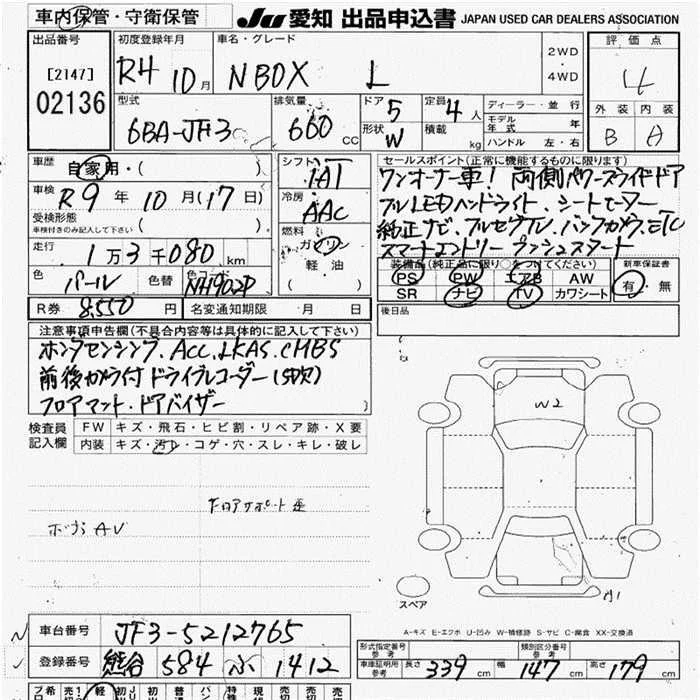 車内保管・守衛保管
JU 愛知 出品申込書 JAPAN USED CAR DEALERS ASSOCIATION
出品番号
[2147]
02136
初度登録年月
R4 10月
車名・グレード
NBOX L
2WD
4WD
評価点
4
外装 内装
B A
型式
6BA-JF3
排気量
660 cc
ドア 5
形状 W
定員 4 人
積載 kg
ディーラー・並行
モデル年式 年
ハンドル 左・右
車歴 自家用・( )
車検 R9年 10月(17日)
受検形態
車検付きのみ記入して下さい ( )
走行 1万3千080 km
色 パール 色替 色コード NH902P
R券 8,550 円 名変通知期限 月 日
シフト IAT
冷房 AAC
燃料 ガソリン
軽油
( )
セールスポイント(正常に機能するものに限ります)
ワンオーナー車! 両側パワースライドドア
フルLEDヘッドライト、シートヒーター
純正ナビ、フルセグTV、バックカメラ、ETC
スマートエントリー プッシュスタート
装備品(純正品に限り○をつけてください)
PS PW エアB AW
SR ナビ TV カワシート
新車保証書
有・無
後日品
注意事項申告欄(不具合内容等は具体的に記入して下さい)
ホンダセンシング、ACC、LKAS、CMBS
前後カメラ付ドライブレコーダー(SD欠)
フロアマット・ドアバイザー
検査員記入欄
FW キズ・飛石・ヒビ割・リペア跡・X要
内装 キズ・汚れ・コゲ・穴・スレ・キレ・破レ
ボデー AV
W2
A1
スペア
A-キズ E-エクボ U-凹み W-補修跡 S-サビ C-腐食 XX-交換済
車台番号 JF3-5212765
登録番号 熊谷 584 ふ 1412
形式指定番号 参考
類別区分番号 参考
車庫証明用 参考 長さ 339 cm 幅 147 cm 高さ 179 cm